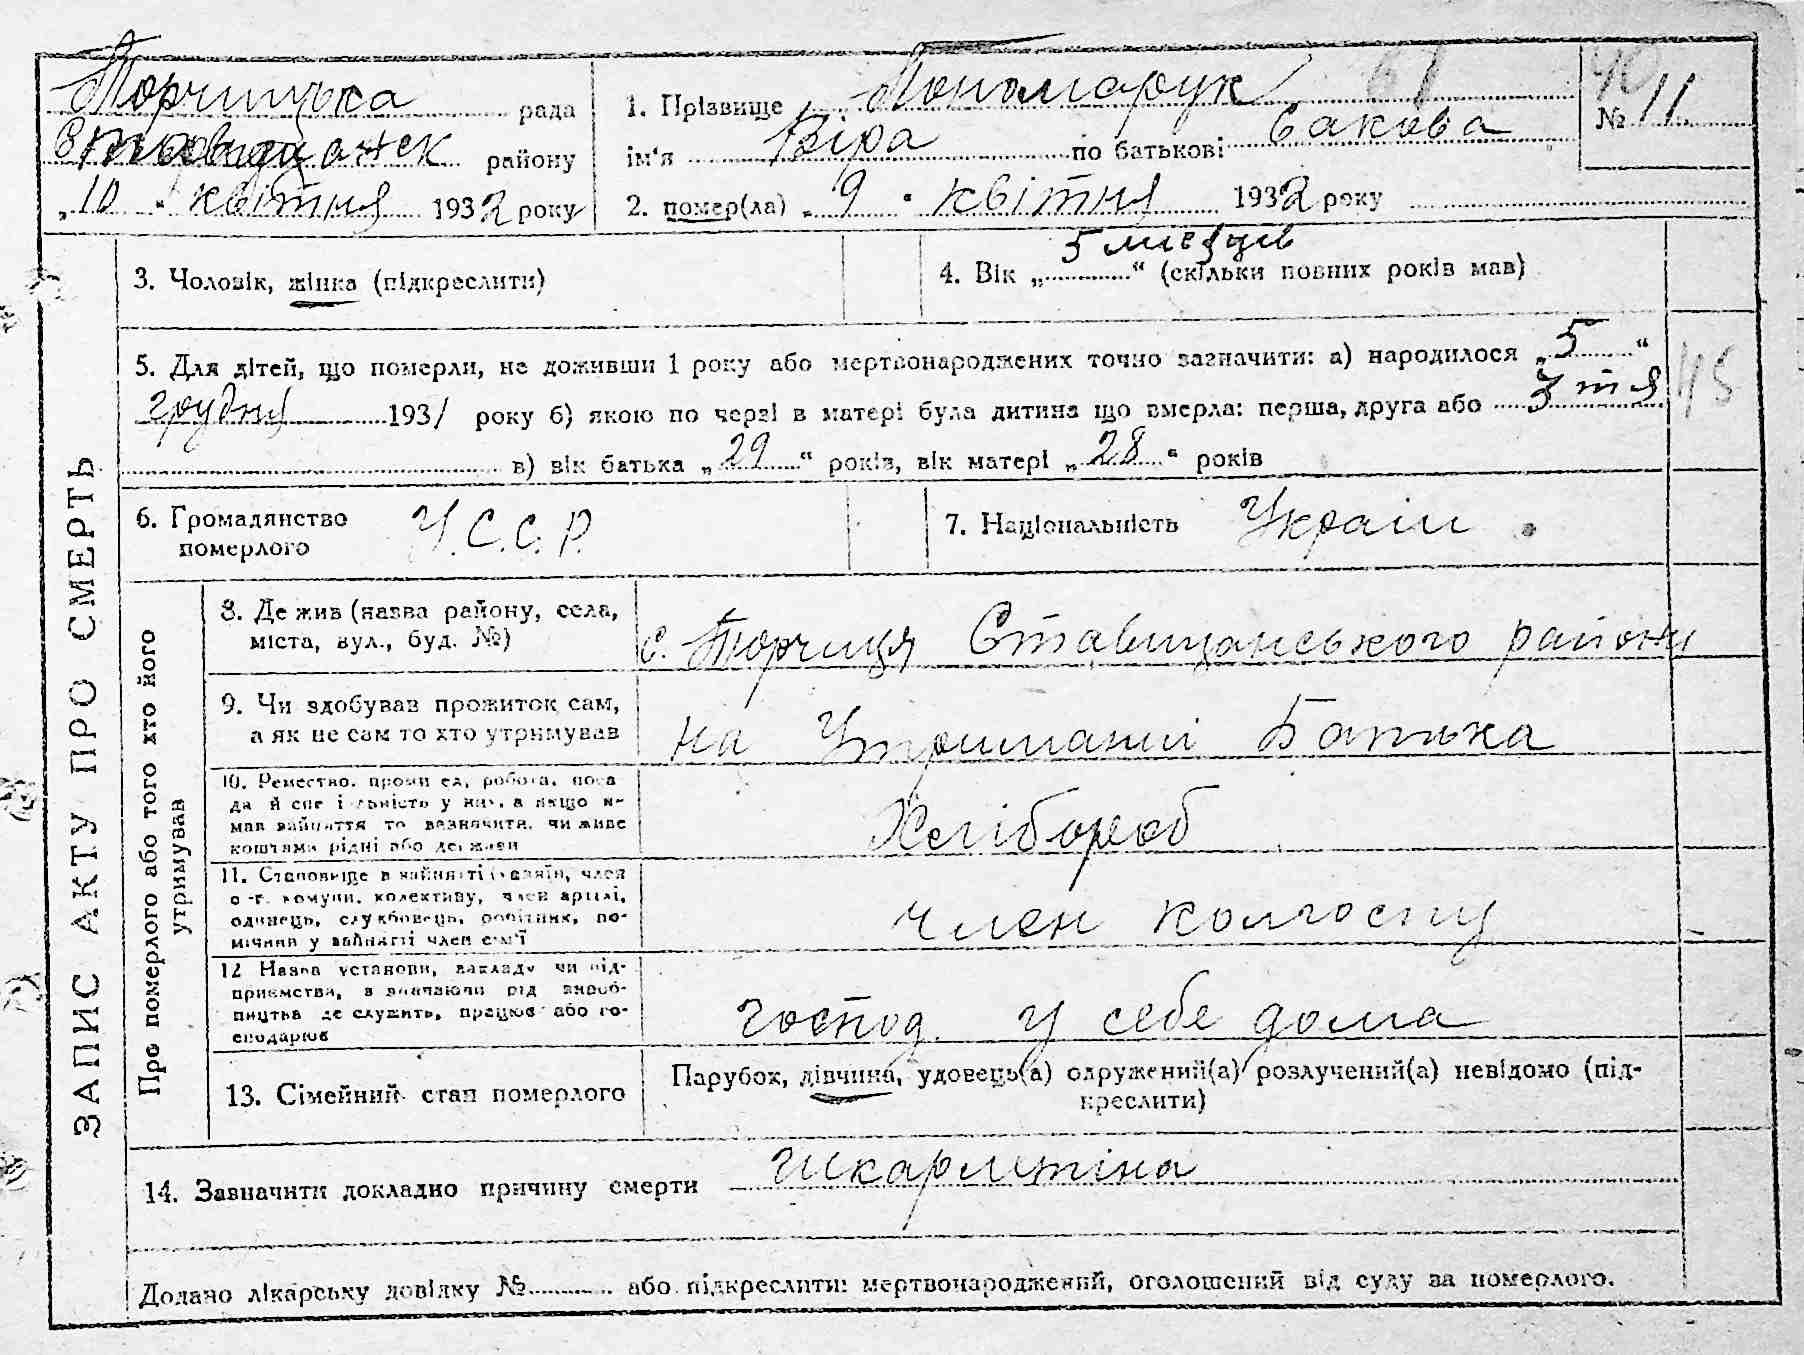 Торчицька рада
Ставищанськ району
„10“ квітня 1932 року
1. Прізвище Пономарук
ім'я Віра по батькові Сакова
№ 11.
2. помер(ла) „9“ квітня 1932 року
ЗАПИС АКТУ ПРО СМЕРТЬ
3. Чоловік, жінка (підкреслити)
4. Вік „5 місяців“ (скільки повних років мав)
5. Для дітей, що померли, не доживши 1 року або мертвонароджених точно зазначити: а) народилося „5“
грудня 1931 року б) якою по черзі в матері була дитина що вмерла: перша, друга або 3 тя
в) вік батька „29“ років, вік матері „28“ років
115
6. Громадянство
померлого
У.С.С.Р.
7. Національність Україн.
Про померлого або того хто його
утримував
8. Де жив (назва району, села,
міста, вул., буд. №)
с. Торчиця Ставищанського району
9. Чи здобував прожиток сам,
а як не сам то хто утримував
на Утриманні Батька
10. Ремество, промисел, робота, поса
да й спеціяльність у них, а якщо н-
мав зайняття то зазначити, чи живе
коштами рідні або держави
Хлібороб
11. Становище в зайнятті (хазяїн, член
с.-г. комуни, колективу, член артілі,
одинець, службовець, робітник, по-
мічний у зайнятті член сем'ї
член колгоспу
12 Назва установи, закладу чи під-
приємства, зазначаючи рід вироб-
ництва де служить, працює або го-
сподарює
господ. у себе дома
13. Сімейний стан померлого
Парубок, дівчина, удовець(а) одружений(а) розлучений(а) невідомо (під-
креслити)
14. Зазначити докладно причину смерти шкарлятіна
Додано лікарську довідку № або підкреслити: мертвонароджений, оголошений від суду за померлого.